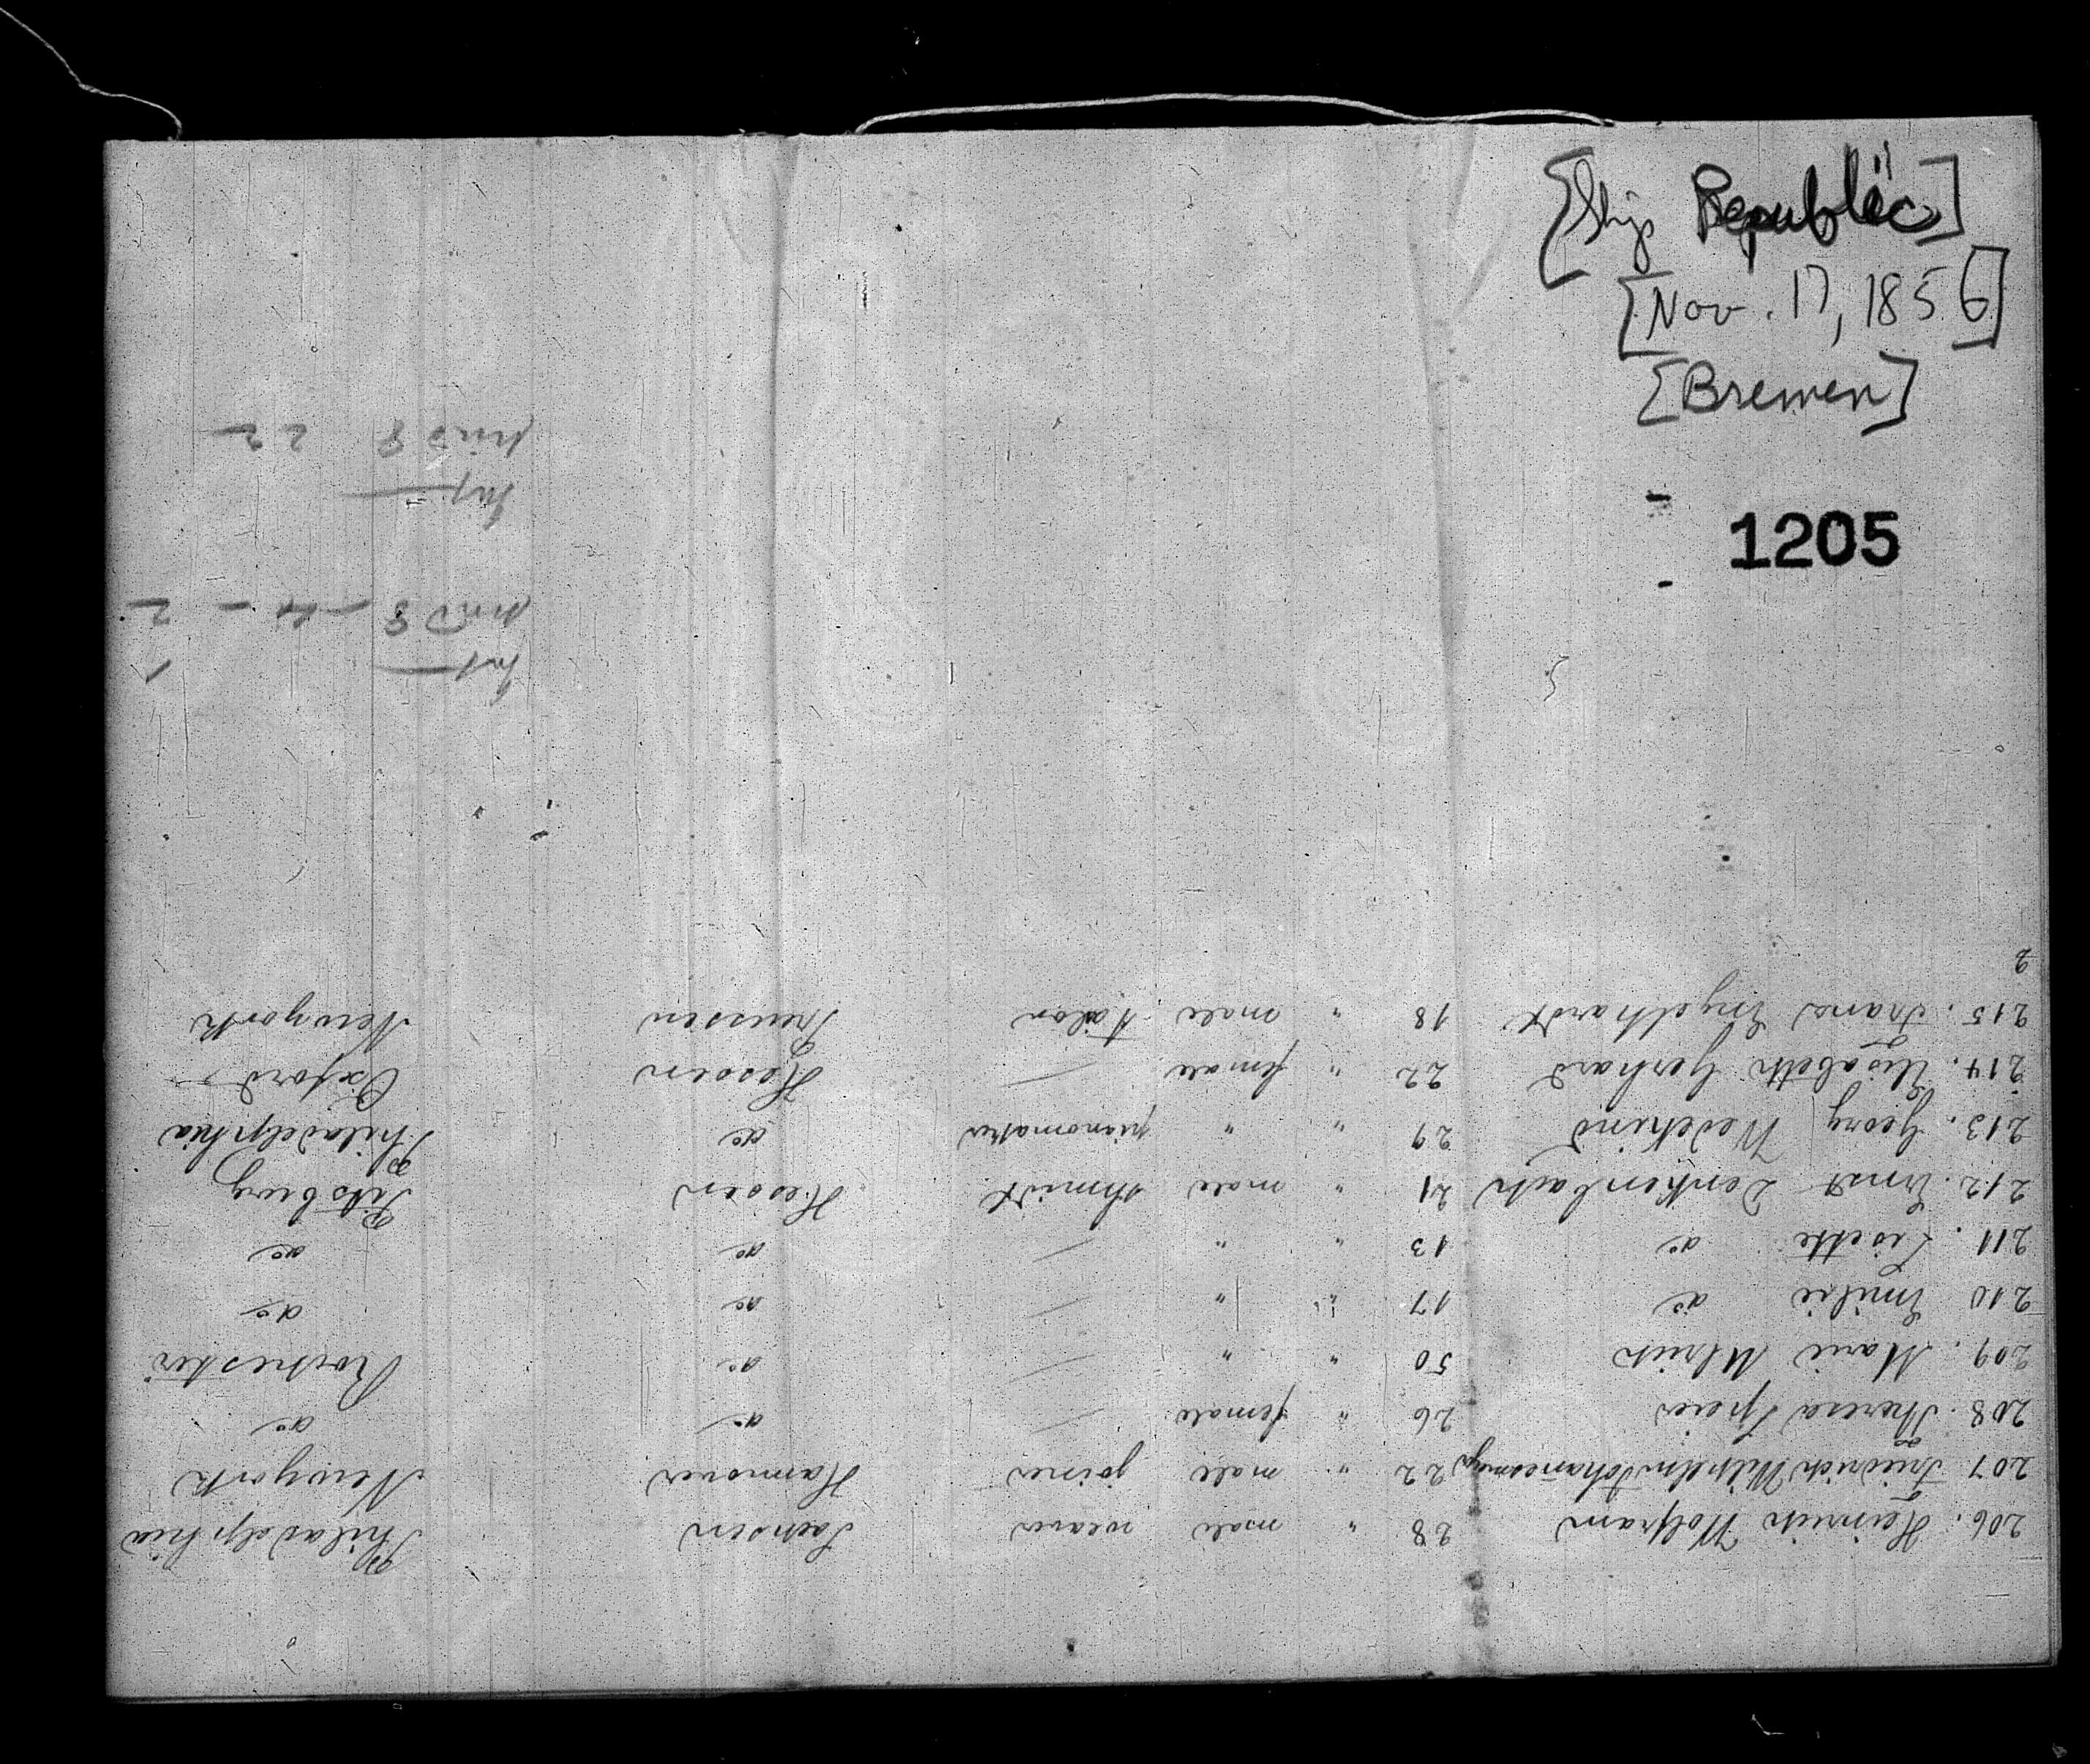 [Ship Republic]
[Nov. 17, 1856]
[Bremen]
1205
206. Heinrich Wolfram 28 " male weaver Sachsen Philadelphia
207 Friedrich Wilhelm 22 " male joiner Hannover Newyork
208. Theresa Speier 26 " female — do do
209. Marie Ulrich 50 " " — do Rochester
210 Emilie do 17 " " — do do
211. Lisette do 13 " " — do do
212. Ernst Denkenbach 21 " male shmidt Hessen Pitsburg
213. Georg Wedekind 29 " " pianomaker do Philadelphia
214. Elisabeth Gerhard 22 " female — Hessen Oxford
215. Franz Engelhardt 18 " male tailor Preussen Newyork
2